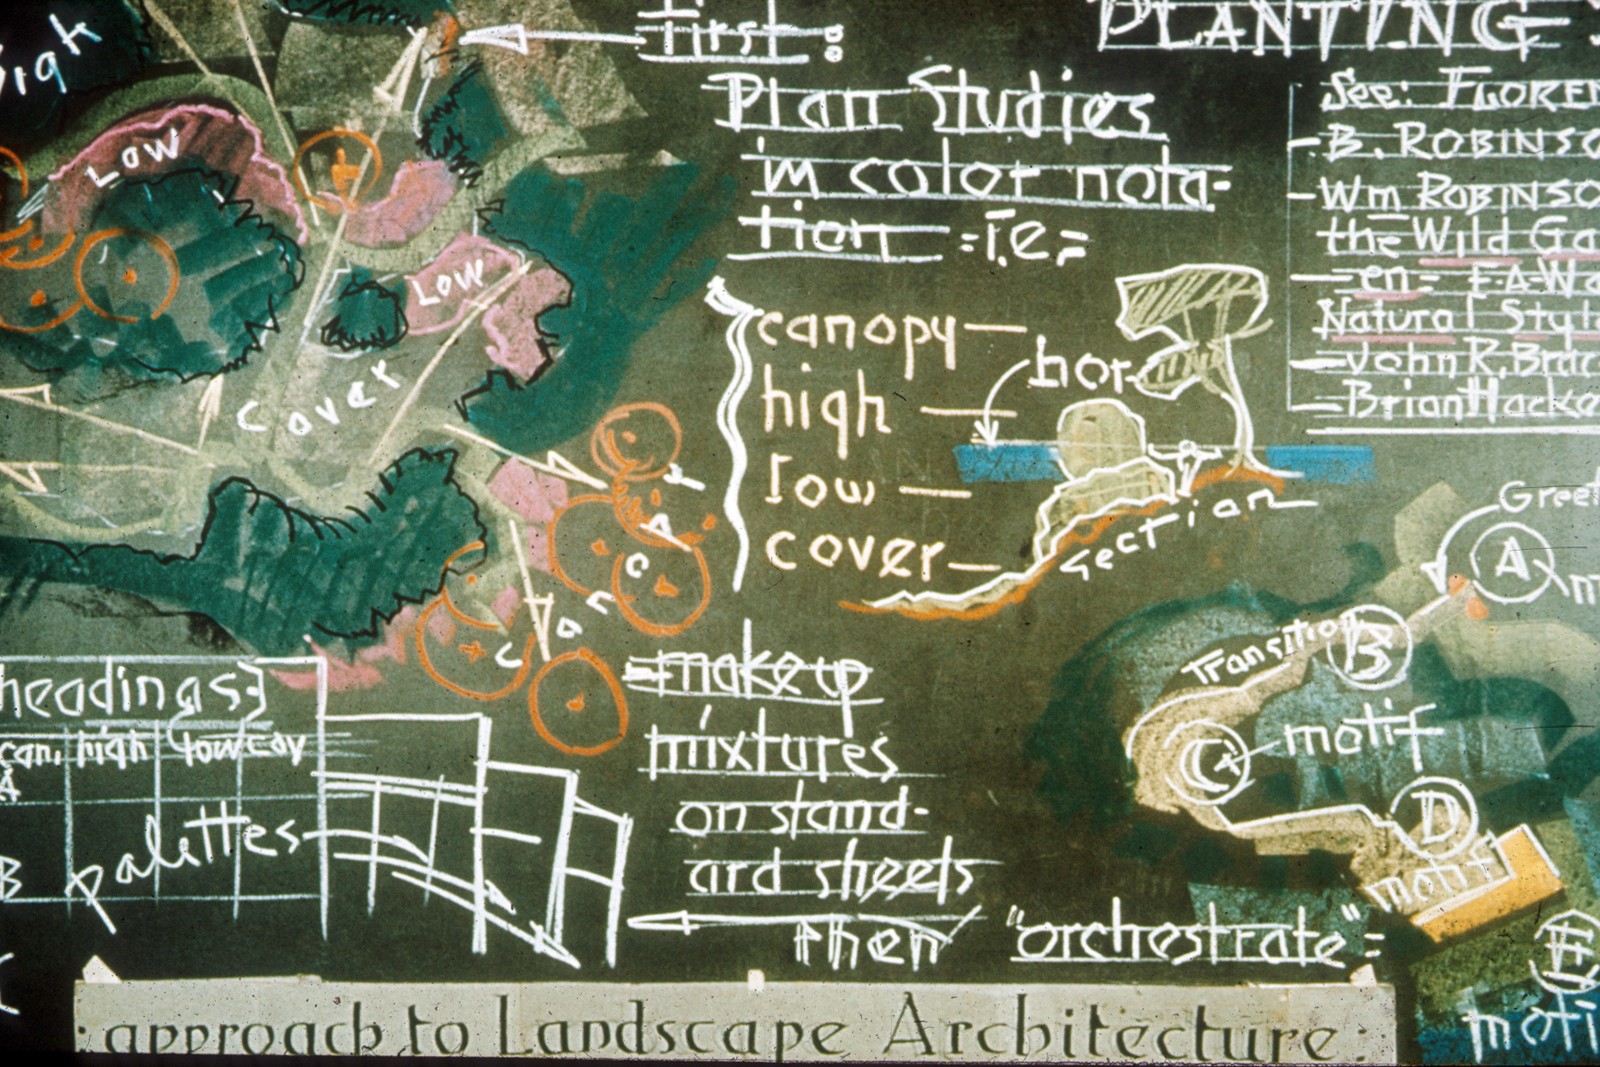 High
Low
Low
Cover
canopy
First:
Plan Studies
in color nota-
tion = i.e =
canopy
high
low
cover
hor
section
PLANTING
See: FLOREN
B. ROBINSO
Wm ROBINSO
the Wild Ga
en = F.A. Wa
Natural Style
John R. Brac
Brian Hacke
Greet
A
Transition B
C motif
D
motif
E
moti
headings}
can, high low cov
A
palettes
B
C
make up
mixtures
on stand-
ard sheets
then "orchestrate" =
: approach to Landscape Architecture :